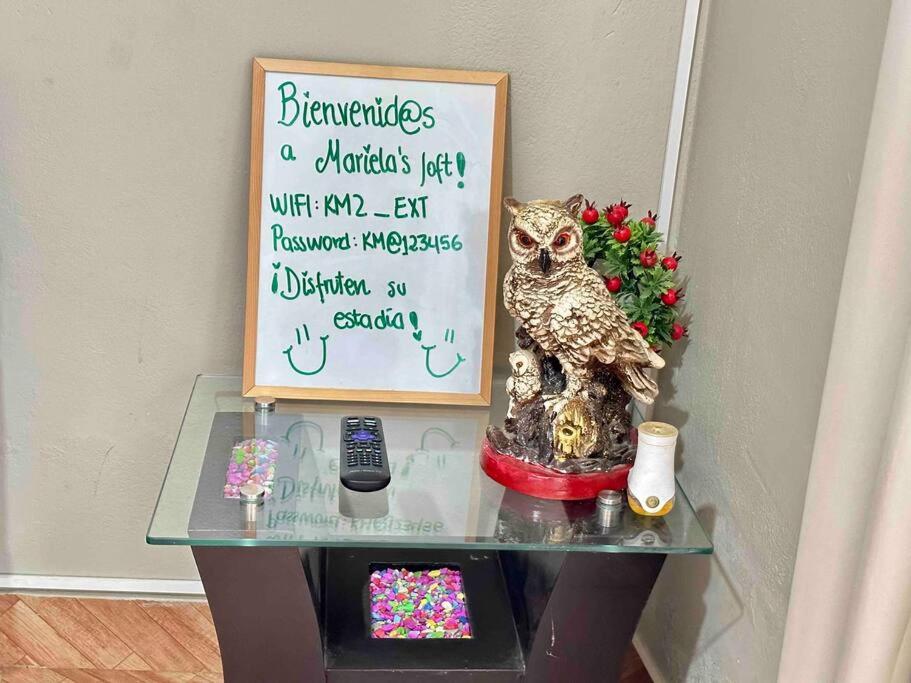 Bienvenid@s
a Mariela's loft!
WIFI: KM2_EXT
Password: KM@123456
¡Disfruten su
estadía!